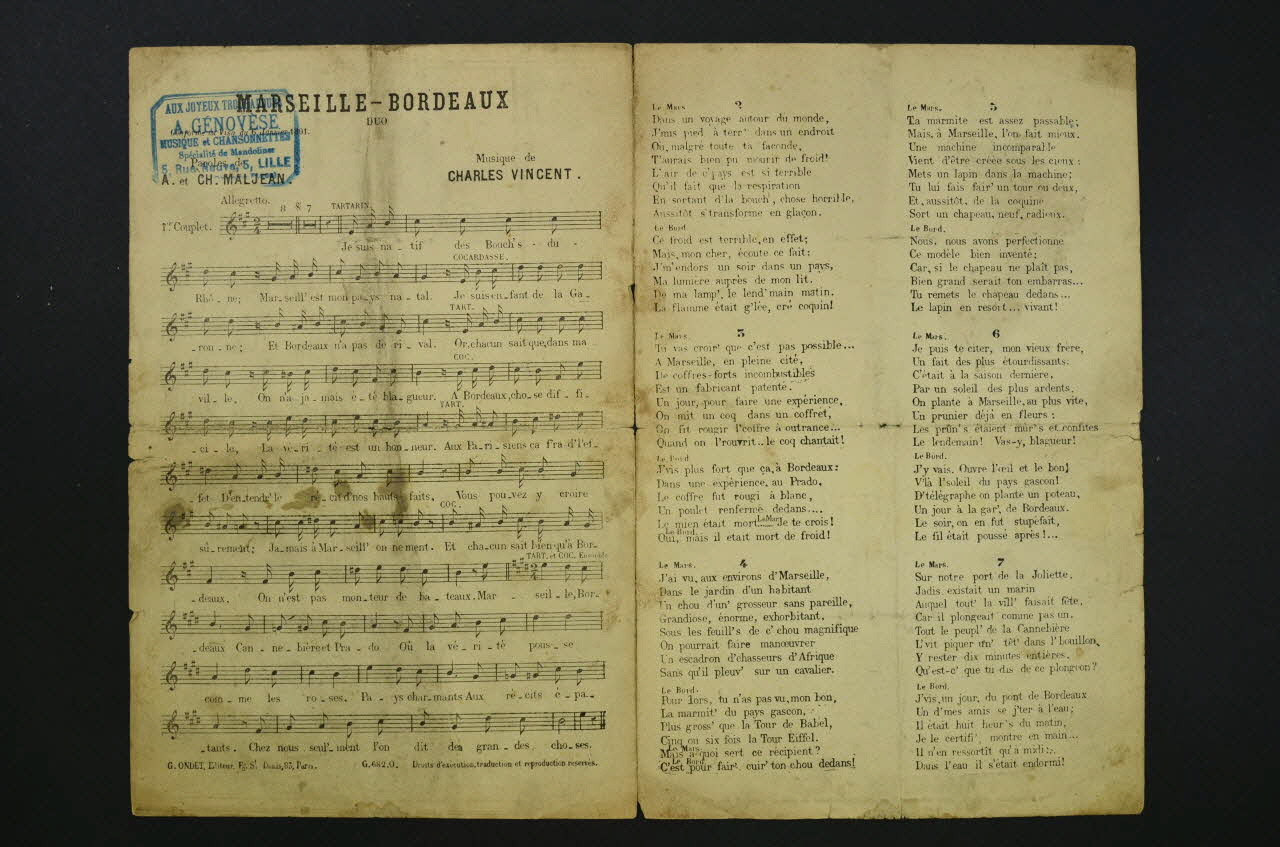 MARSEILLE-BORDEAUX
DUO
AUX JOYEUX
A. GÉNOVÈSE
MUSIQUE et CHANSONNETTES
Spécialité de Mandolines
5, Rue Neuve, 5, LILLE
Paroles de
A. et CH. MALJEAN.
Musique de
CHARLES VINCENT.
Allegretto.
8 7
TARTARIN.
1er Couplet.
Je suis na_tif des Bouch's-du-
COCARDASSE.
Rhô_ne; Mar_seill' est mon pa_ys na_tal. Je suis en_fant de la Ga_
TART.
_ron_ne; Et Bordeaux n'a pas de ri_val. Or, chacun sait que, dans ma
COC.
vil_le, On n'a ja_mais é_té bla_gueur. A Bordeaux, cho_se dif_fi_
TART.
_ci_le, La vé_ri_té est un hon_neur. Aux Pa_ri_siens ca fra d'l'ef_
_fet D'en_tendr' le ré_cit d'nos hauts faits, Vous pou_vez y croire
COC.
sû_rement; Ja_mais à Mar_seill' on ne ment. Et cha_cun sait bien qu'à Bor_
TART. et COC. Ensemble
_deaux. On n'est pas mon_teur de ba_teaux. Mar_seil_le, Bor_
_deaux Can_ne_bière et Pra_do Où la vé_ri_té pous_se
com_me les ro_ses. Pa_ys char_mants Aux ré_cits é_pa_
_tants. Chez nous seul'_ment l'on dit des gran_des cho_ses.
G. ONDET, Editeur, Fg. St Denis, 83, Paris. G. 682. O. Droits d'exécution, traduction et reproduction réservés.
2
Le Mars
Dans un voyage autour du monde,
J'mis pied à terr' dans un endroit
Où, malgré toute ta faconde,
T'aurais bien pu mourir de froid!
L'air de c'pays est si terrible
Qu'il fait que la respiration
En sortant d'la bouch', chose horrible,
Aussitôt s'transforme en glaçon.
Le Bord
Ce froid est terrible, en effet;
Mais, mon cher, écoute ce fait:
J'm'endors un soir dans un pays,
Ma lumière auprès de mon lit.
De ma lamp', le lend'main matin.
La flamme était g'lée, cré coquin!
3
Le Mars
Tu vas croir' que c'est pas possible...
A Marseille, en pleine cité,
De coffres-forts incombustibles
Est un fabricant patenté.
Un jour, pour faire une expérience,
On mit un coq dans un coffret,
On fit rougir l'coffre à outrance...
Quand on l'rouvrit.. le coq chantait!
Le Bord
J'vis plus fort que ça, à Bordeaux:
Dans une expérience, au Prado,
Le coffre fut rougi à blanc,
Un poulet renfermé dedans....
Le mien était mort. Le Mars. Je te crois!
Le Bord.
Oui, mais il était mort de froid!
4
Le Mars.
J'ai vu, aux environs d'Marseille,
Dans le jardin d'un habitant
Un chou d'un' grosseur sans pareille,
Grandiose, énorme, exhorbitant,
Sous les feuill's de c'chou magnifique
On pourrait faire manœuvrer
Un escadron d'chasseurs d'Afrique
Sans qu'il pleuv' sur un cavalier.
Le Bord.
Pour lors, tu n'as pas vu, mon bon,
La marmit' du pays gascon,
Plus gross' que la Tour de Babel,
Cinq ou six fois la Tour Eiffel.
Le Mars.
Mais à quoi sert ce récipient?
Le Bord
C'est pour fair' cuir' ton chou dedans!
5
Le Mars.
Ta marmite est assez passable;
Mais, à Marseille, l'on fait mieux.
Une machine incomparable
Vient d'être créée sous les cieux:
Mets un lapin dans la machine;
Tu lui fais fair' un tour ou deux,
Et, aussitôt, de la coquine
Sort un chapeau, neuf, radieux.
Le Bord.
Nous, nous avons perfectionné
Ce modèle bien inventé;
Car, si le chapeau ne plaît pas,
Bien grand serait ton embarras...
Tu remets le chapeau dedans...
Le lapin en resort... vivant!
6
Le Mars.
Je puis te citer, mon vieux frère,
Un fait des plus étourdissants:
C'était à la saison dernière,
Par un soleil des plus ardents,
On plante à Marseille, au plus vite,
Un prunier déjà en fleurs;
Les prun's étaient mûr's et confites
Le lendemain! Vas-y, blagueur!
Le Bord.
J'y vais. Ouvre l'œil et le bon!
V'là l'soleil du pays gascon!
D'télégraphe on plante un poteau,
Un jour à la gar', de Bordeaux.
Le soir, on en fut stupéfait,
Le fil était poussé après!...
7
Le Mars.
Sur notre port de la Joliette,
Jadis existait un marin
Auquel tout' la vill' faisait fête,
Car il plongeait comme pas un.
Tout le peupl' de la Cannebière
L'vit piquer un' têt' dans l'bouillon,
Y rester dix minutes entières.
Qu'est-c' que tu dis de ce plongeon?
Le Bord.
J'vis, un jour, du pont de Bordeaux
Un d'mes amis se j'ter à l'eau;
Il était huit heur's du matin,
Je le certifi', montre en main...
Il n'en ressortit qu'à midi:.
Dans l'eau il s'était endormi!